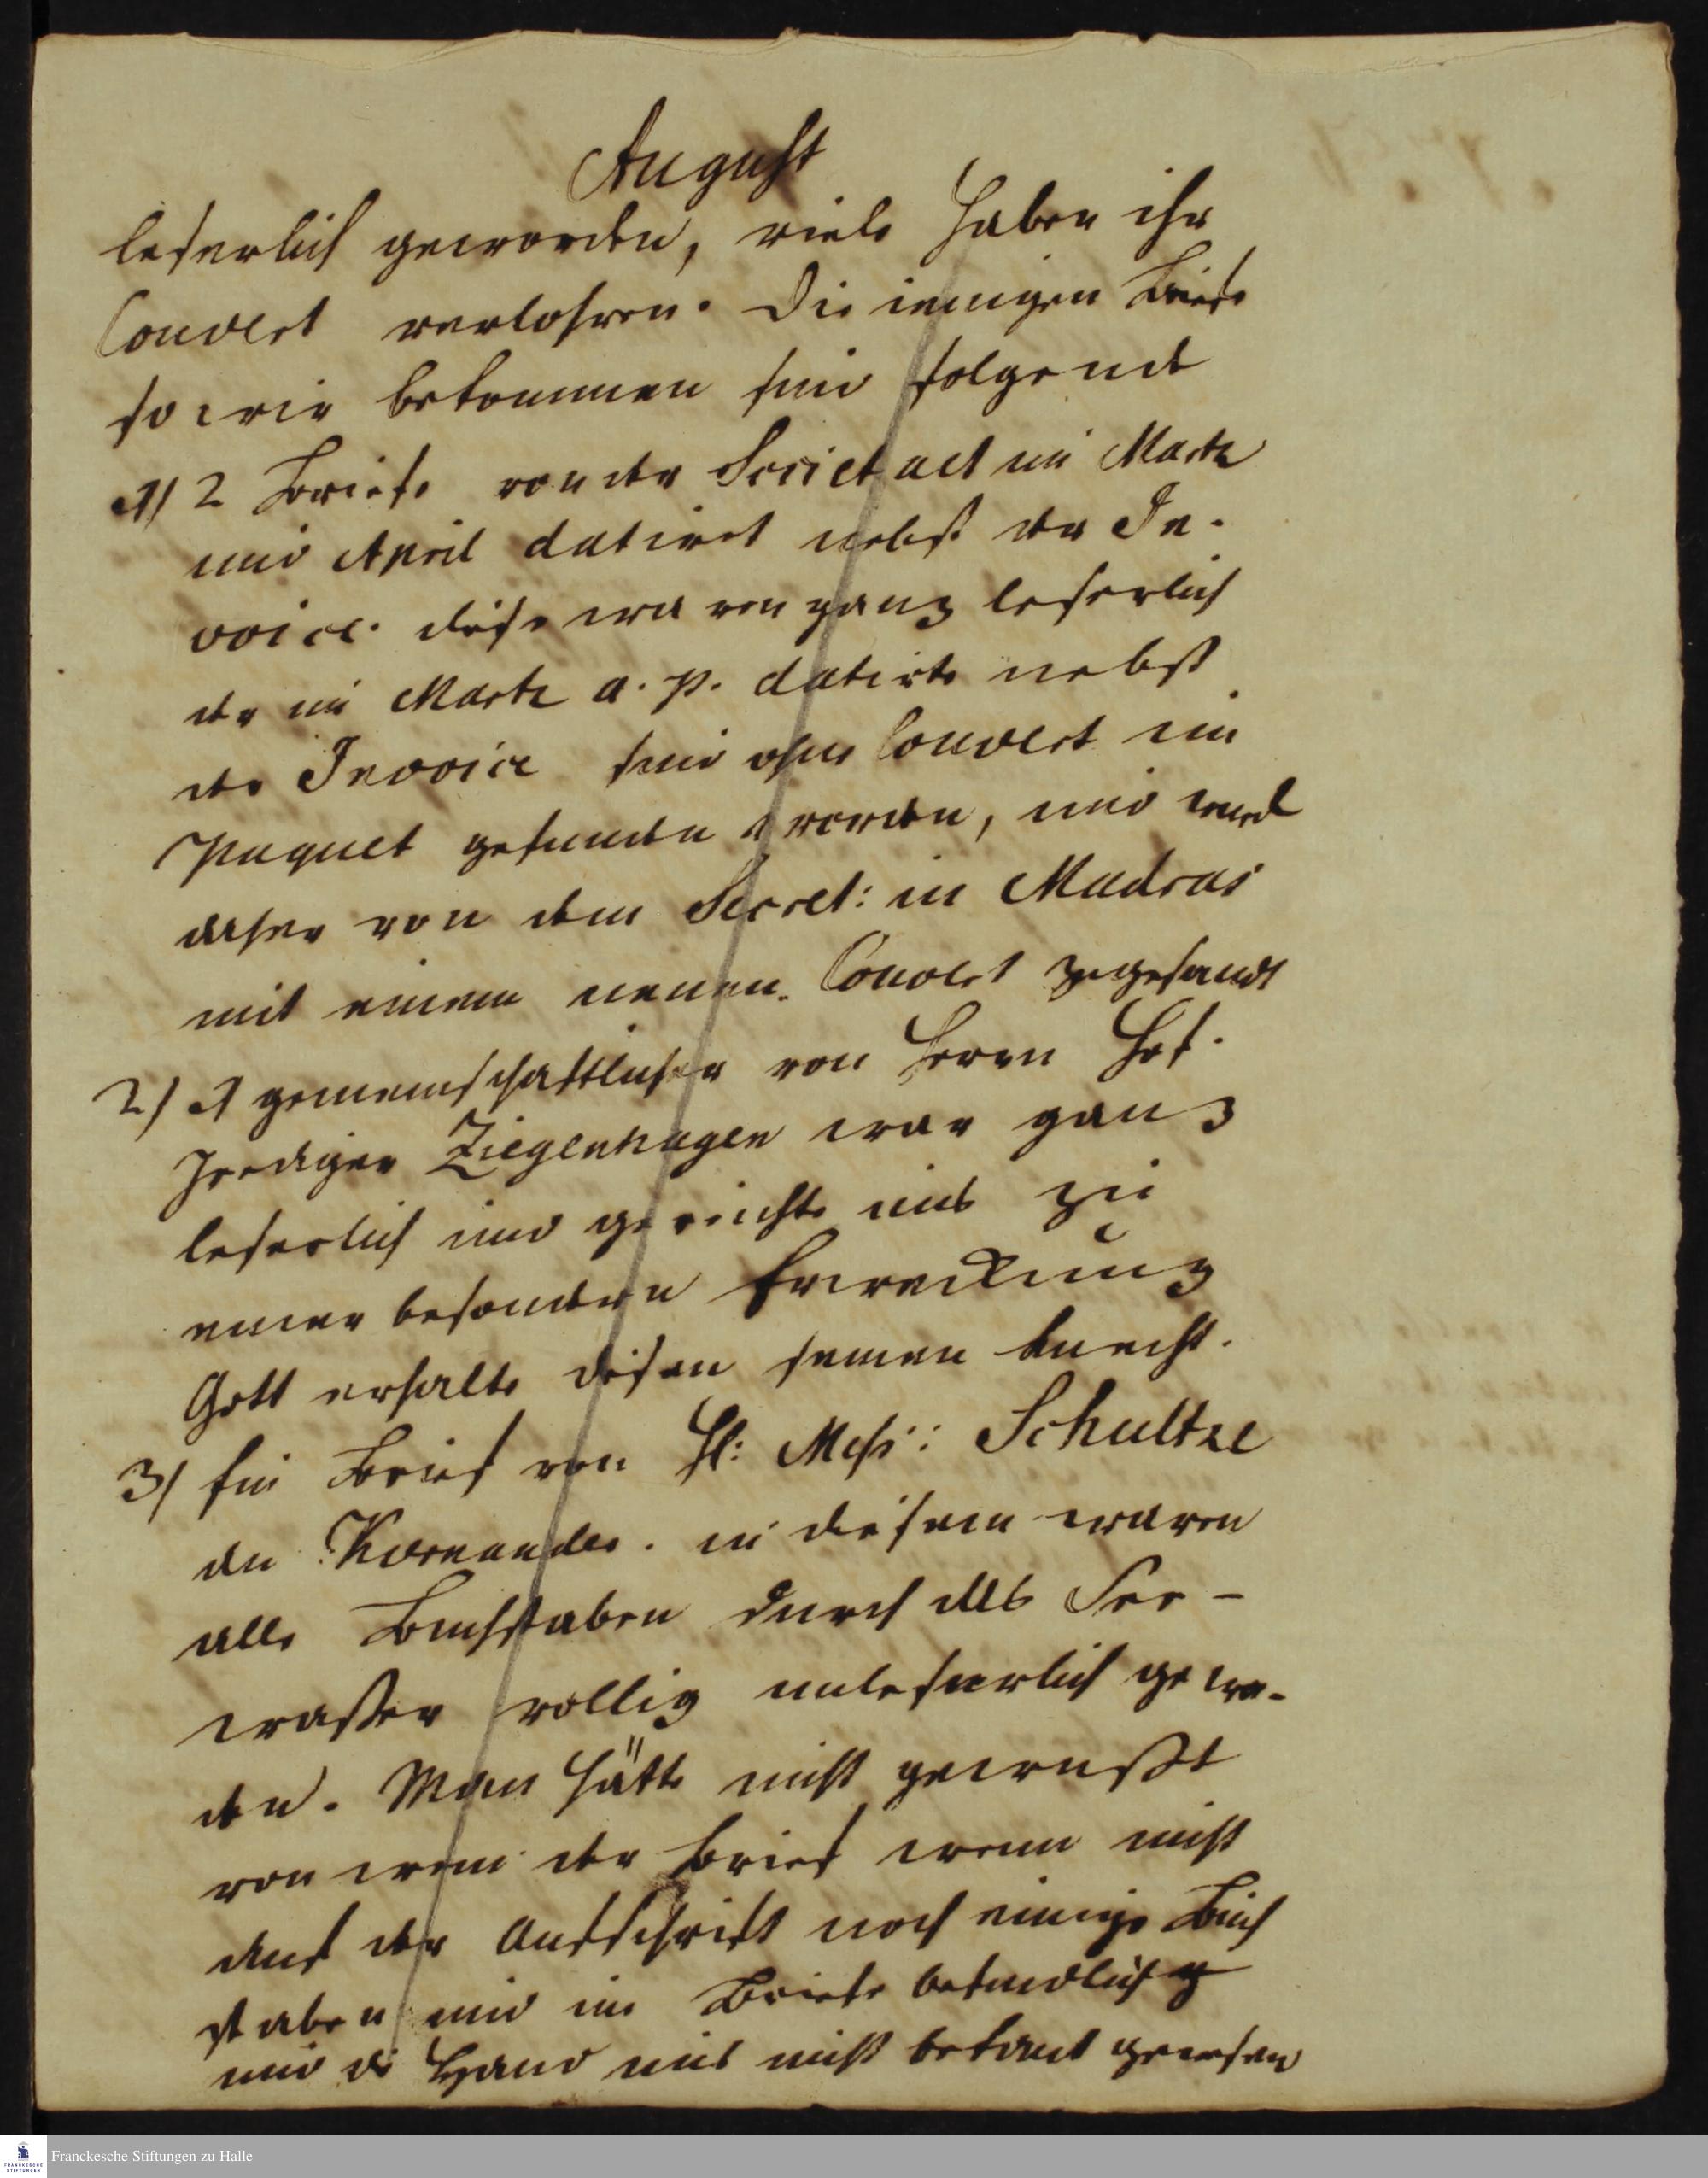 August
leserlich geworden, viele haben ihr
Couvert verlohren. Die ienigen Briefe
so wir bekommen sind folgende
1) 2 Briefe von der Societaet im Martz
und April datiret nebst der In-
voice. diese waren ganz leserlich
der im Martz a. p. datirte nebst
der Invoice sind ohne Couvert im
Paquet gefunden worden, und wurd
daher von dem Secret: in Madras
mit einem neuen Couvert zugesandt
2) 1 gemeinschaftlicher von Herrn Hof-
Prediger Ziegenhagen war ganz
leserlich und gereichte uns zu
einer besondern Erweckung
Gott erhalte diesen seinen Knecht.
3) Ein Brief von H: Miss: Schultze
an. in diesem waren
alle Buchstaben durch das See-
wasser vollig unleserlich gewor-
den. Man hätte nicht gewußt
von wem der Brief wenn nicht
auf der Aufschrift noch einige Buch
staben und im Briefe befindlich
und die Hand uns nicht bekant gewesen
Franckesche Stiftungen zu Halle
FRANCKESCHE
STIFTUNGEN